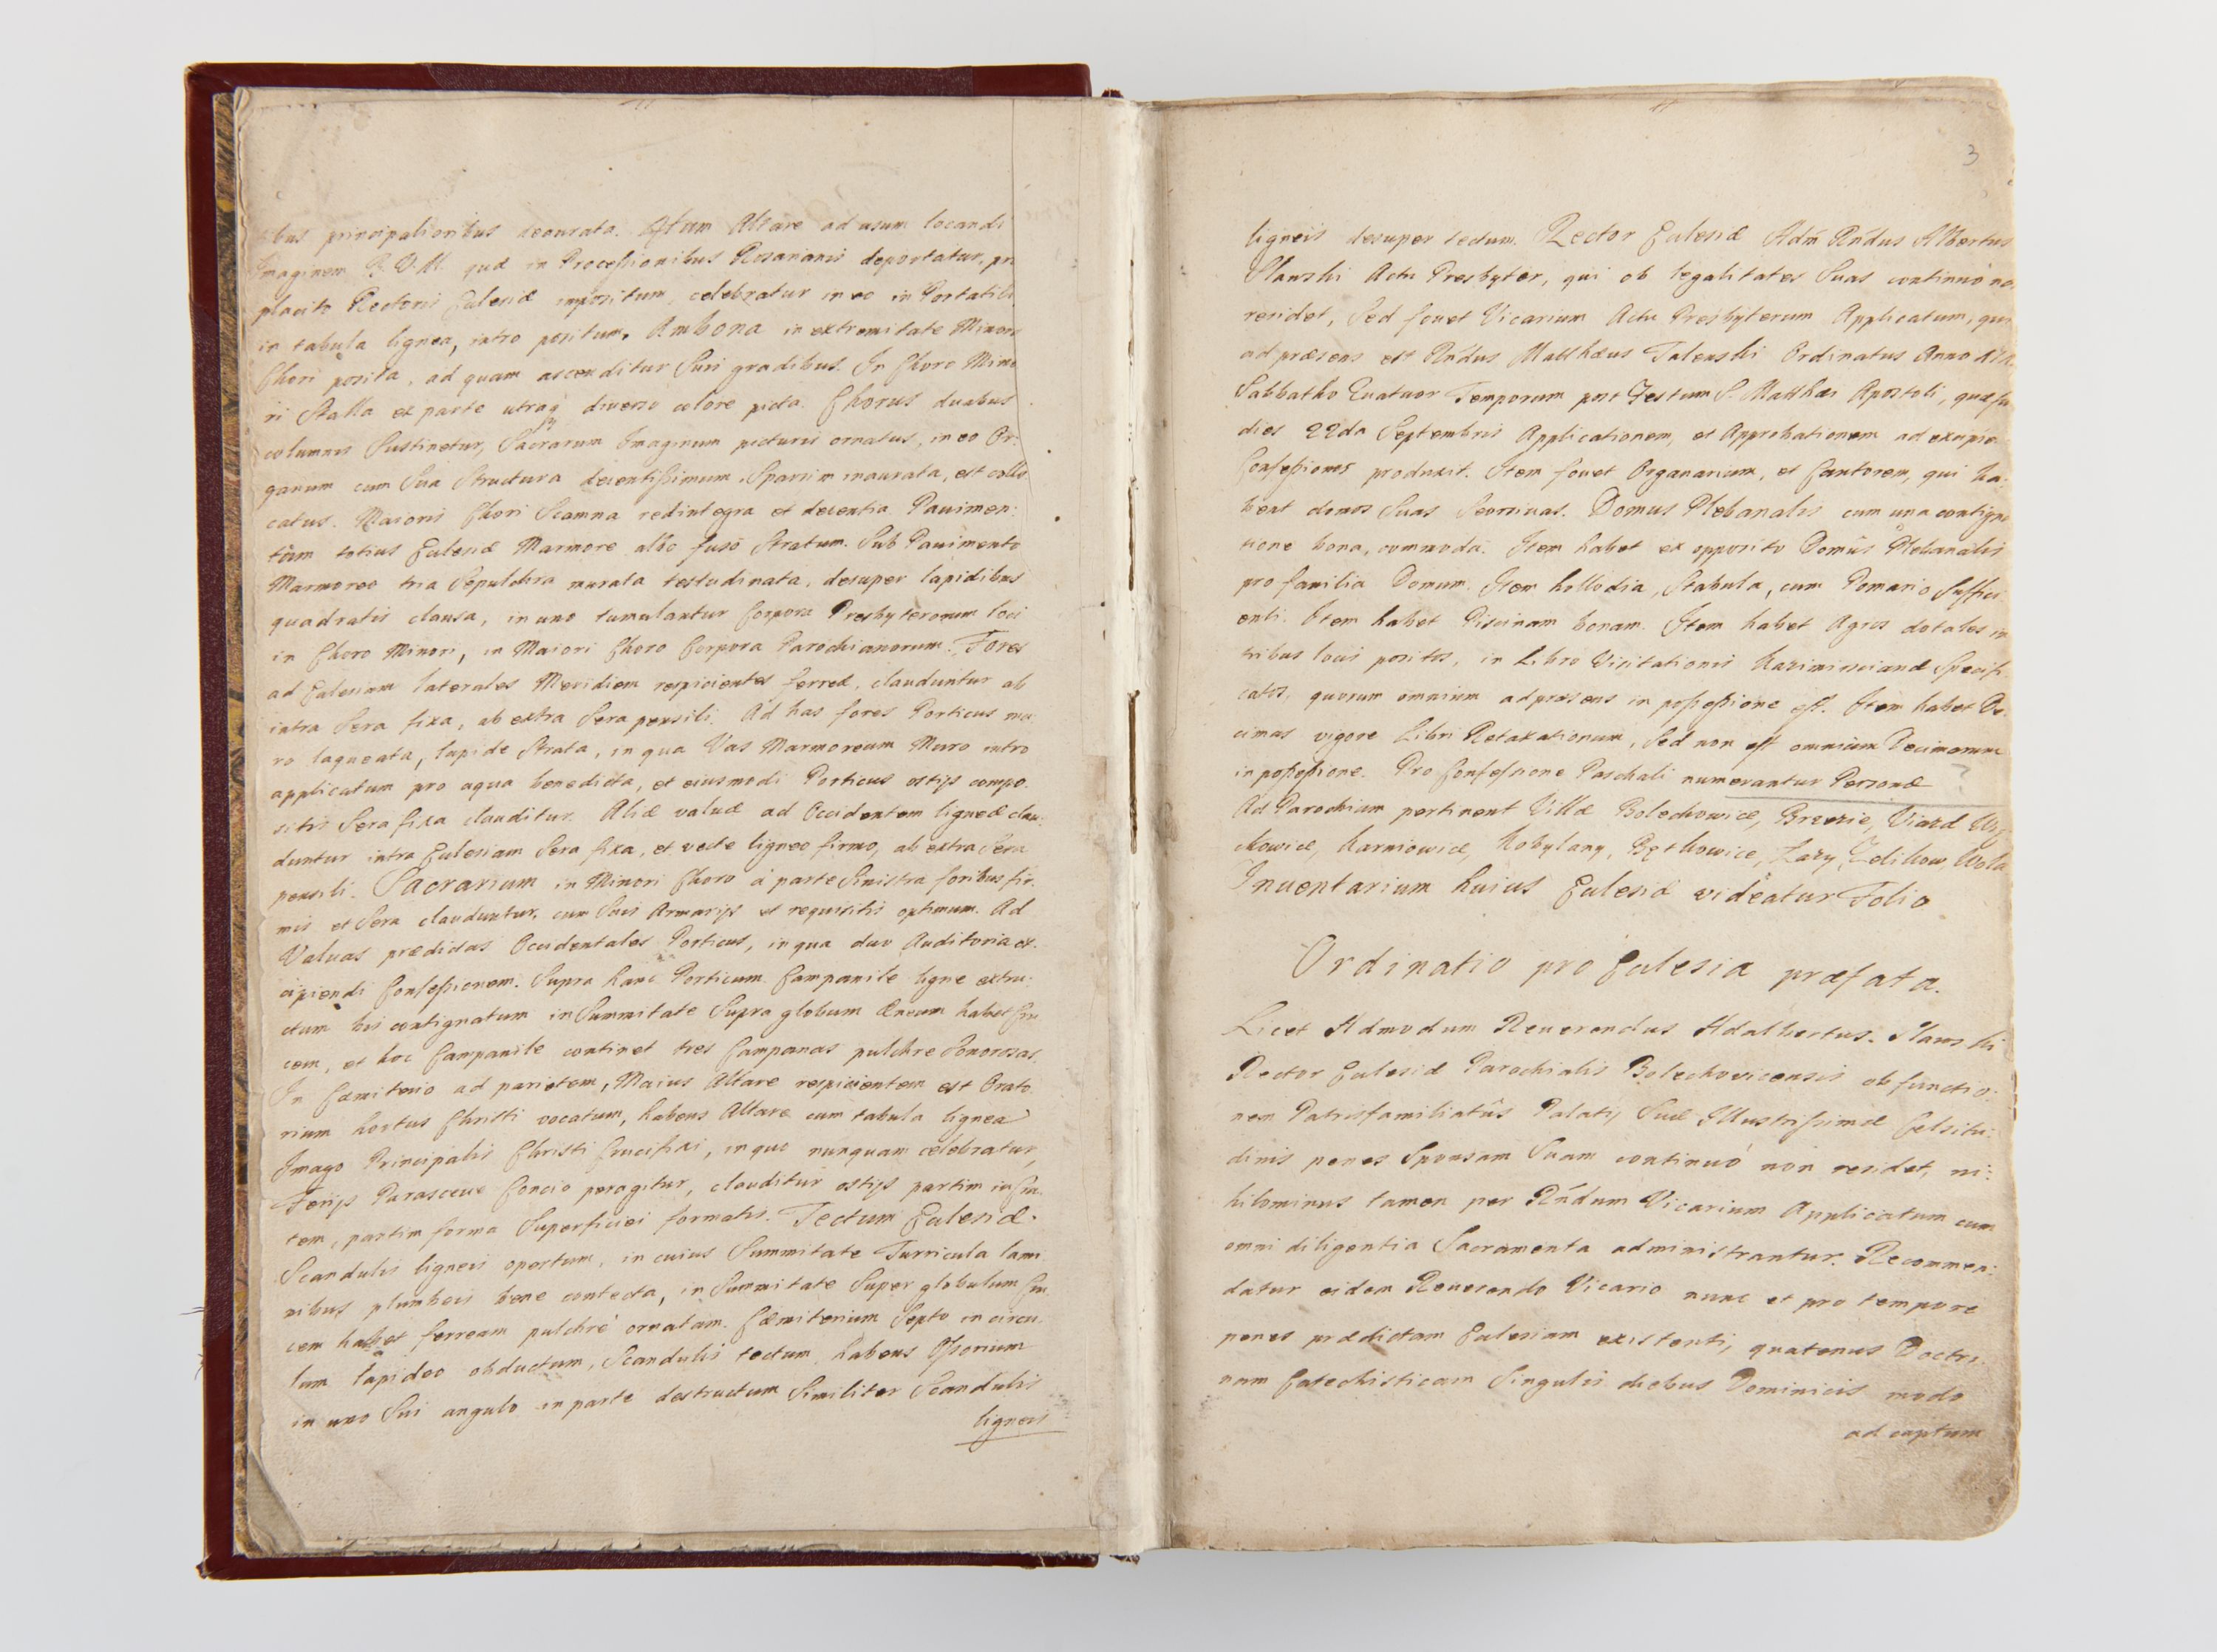 ibus principalioribus deaurata. Altare ad usum locandi
Imaginem B. V. M. quæ in Processionibus Rosarianis deportatur, pro
placito Rectoris Ecclesiæ impositum, celebratur in eo in Portatili
in tabula lignea, intro positum. Ambona in extremitate Minoris
Chori posita, ad quam ascenditur suis gradibus. In Choro Mino
ri Stalla ex parte utraq diverso colore picta. Chorus duabus
columnis Sustinetur, Sacrarum Imaginum picturis ornatus, in eo Or:
ganum cum Sua Structura decentissimum Sparsim inaurata, est collo
catus. Maioris Chori Scamna redintegra et decentia. Pauimen:
tum totius Ecclesiæ Marmore albo fuso Stratum. Sub Pauimento
Marmoreo tria Sepulchra murata testudinata, desuper lapidibus
quadratis clausa, in uno tumulantur Corpora Presbyterorum loci
in Choro Minori, in Maiori Choro Corpora Parochianorum. Fores
ad Ecclesiam laterales Meridiem respicientes ferreæ, clauduntur ab
intra Sera fixa, ab extra Sera pensili. Ad has fores Porticus mu:
ro laqueata, lapide Strata, in qua Vas Marmoreum Muro intro
applicatum pro aqua benedicta, et eiusmodi Porticus ostijs compo:
sitis Sera fixa clauditur. Aliæ valuæ ad Occidentem ligneæ clau:
duntur intra Ecclesiam Sera fixa, et vecte ligneo firmo, ab extra Sera
pensili. Sacrarium in Minori Choro á parte Sinistra foribus fir:
mis et Sera clauduntur, cum Suis Armarijs et requisitis optimum. Ad
Valuas prædictas Occidentales Porticus, in qua duo Auditoria ex:
cipiendi Confessionem. Supra hanc Porticum Campanile ligne extru:
ctum bis contignatum in Summitate Supra globum æneum habet Cru
cem, et hoc Campanile continet tres Campanas pulchre Sonorosas.
In Cæmiterio ad parietem, Maius Altare respicientem est Orato
rium hortus Christi vocatum, habens Altare cum tabula lignea
Imago Principalis Christi Crucifixi, in quo nunquam celebratur,
Ferijs Parasceue Concio peragitur, clauditur ostijs partim in Cra:
tem, partim forma Superficiei formatis. Tectum Ecclesiæ
Scandulis ligneis opertum, in cuius Summitate Turricula lami
nibus plumbeis bene contecta, in Summitate Super globulum Cru
cem habet ferream pulchré ornatam. Cæmiterium Septo in circu:
lum lapideo obductum, Scandulis tectum, habens Ossorium
in uno Sui angulo in parte destructum Similiter Scandulis
ligneis
3
ligneis desuper tectum. Rector Ecclesiæ Adm̃ Rñdus Albertus
Sławski Actu Presbyter, qui ob legalitates Suas continuó no
residet, Sed fouet Vicarium Actu Presbyterum Applicatum, qui
ad præsens est Rñdus Matthæus Talenski Ordinatus Anno
Sabbatho Quatuor Temporum post Festum S. Matthæi Apostoli, quæ fu
dies 22da Septembris Applicationem, et Approbationem ad excipien
Confessiones produxit. Item fouet Organarium, et Cantorem, qui ha:
beat domos Suas Seorsivas. Domus Plebanalis cum una contigna
tione bona, commoda. Item habet ex opposito Domûs Plebanalis
pro familia Domum. Item hallodia, Stabula, cum Pomario Suffici
enti. Item habet Piscinam bonam. Item habet Agros dotales in
tribus locis positos, in Libro Visitationis Kazimirscianæ Specifi:
catos, quorum omnium ad præsens in possessione est. Item habet De:
cimas vigore Libri Retaxationum, Sed non est omnium Decimarum
in possessione. Pro Confessione Paschali numerantur Personæ ?
Ad Parochiam pertinent Villæ Bolechowice, Brzezie, Viazd
ckowice, Karniowice, Kobylany, Bętkowice, Łazy, Zelikow, Wola
Inuentarium huius Ecclesiæ videatur Folio
Ordinatio pro Ecclesia præfata.
Licet Admodum Reuerendus Adalbertus Sławski
Rector Ecclesiæ Parochialis Bolechovicensis ob functio:
nem Patrisfamiliatûs Palatij Suæ Illustrissimæ Celsitu:
dinis penes Sponsam Suam continuó non residet, ni:
hilominus tamen per Rñdum Vicarium Applicatum cum
omni diligentia Sacramenta administrantur. Recommen:
datur eidem Reuerendo Vicario nunc et pro tempore
penes prædictam Ecclesiam existenti, quatenus Doctri:
nam Catechisticam Singulis diebus Dominicis modo
ad captum